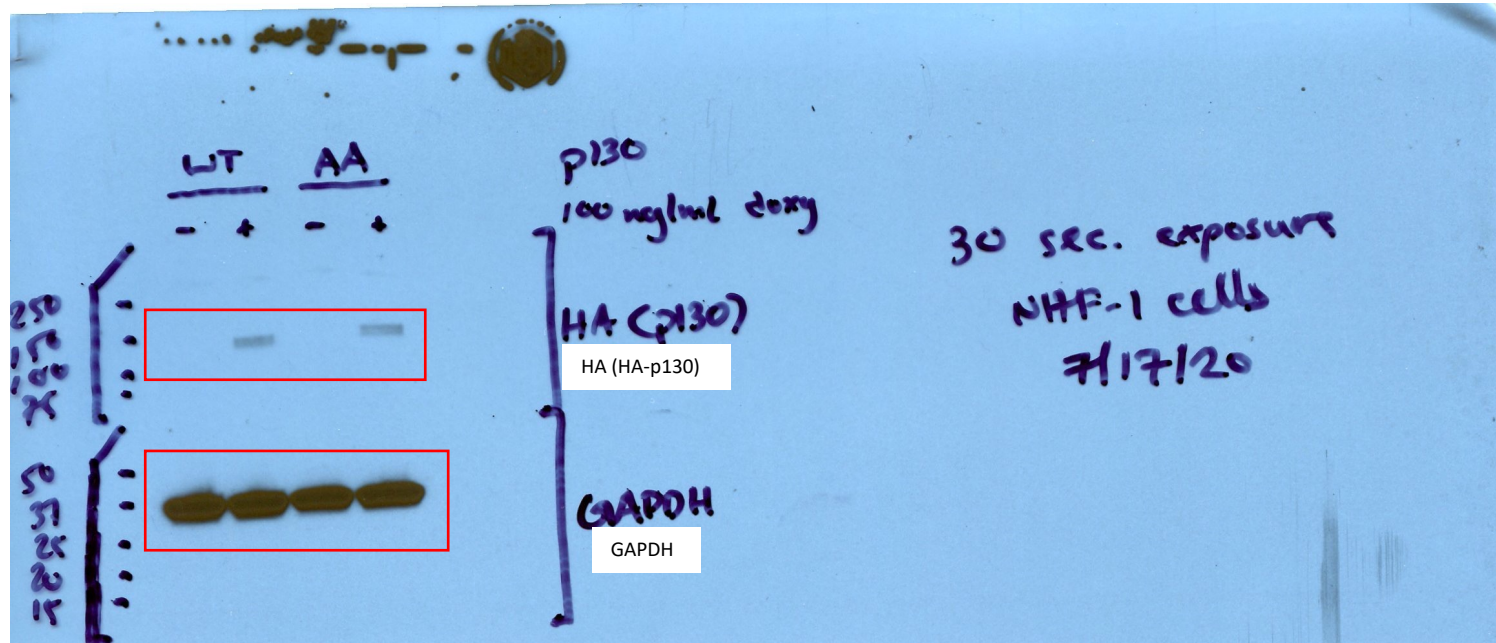 WT AA
- + - +
p130
100 ng/ml doxy
250
150
100
75
HA (p130)
HA (HA-p130)
50
37
25
20
15
GAPDH
GAPDH
30 sec. exposure
NHF-1 cells
7/17/20